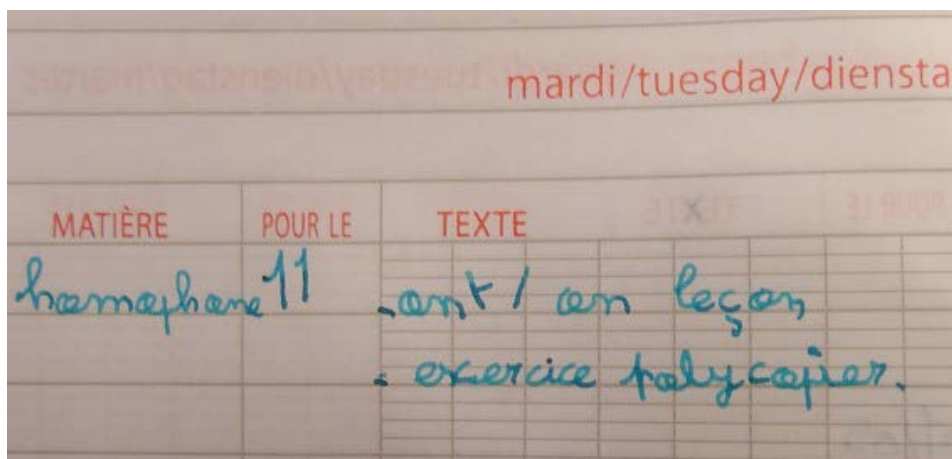 mardi/tuesday/diensta
MATIÈRE POUR LE TEXTE
homophone 11 - ont / on leçon
- exercice polycopier.